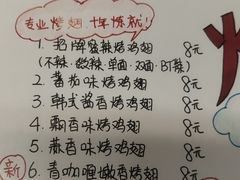 专业烤翅 十年炼就!
1. 招牌蜜辣烤鸡翅 8元
(不辣、微辣、单面、双面、BT辣)
2. 番茄味烤鸡翅 8元
3. 韩式酱香烤鸡翅 8元
4. 飘香味烤鸡翅 8元
5. 蒜香味烤鸡翅 8元
新 6. 青咖喱嫩香烤鸡翅 8元